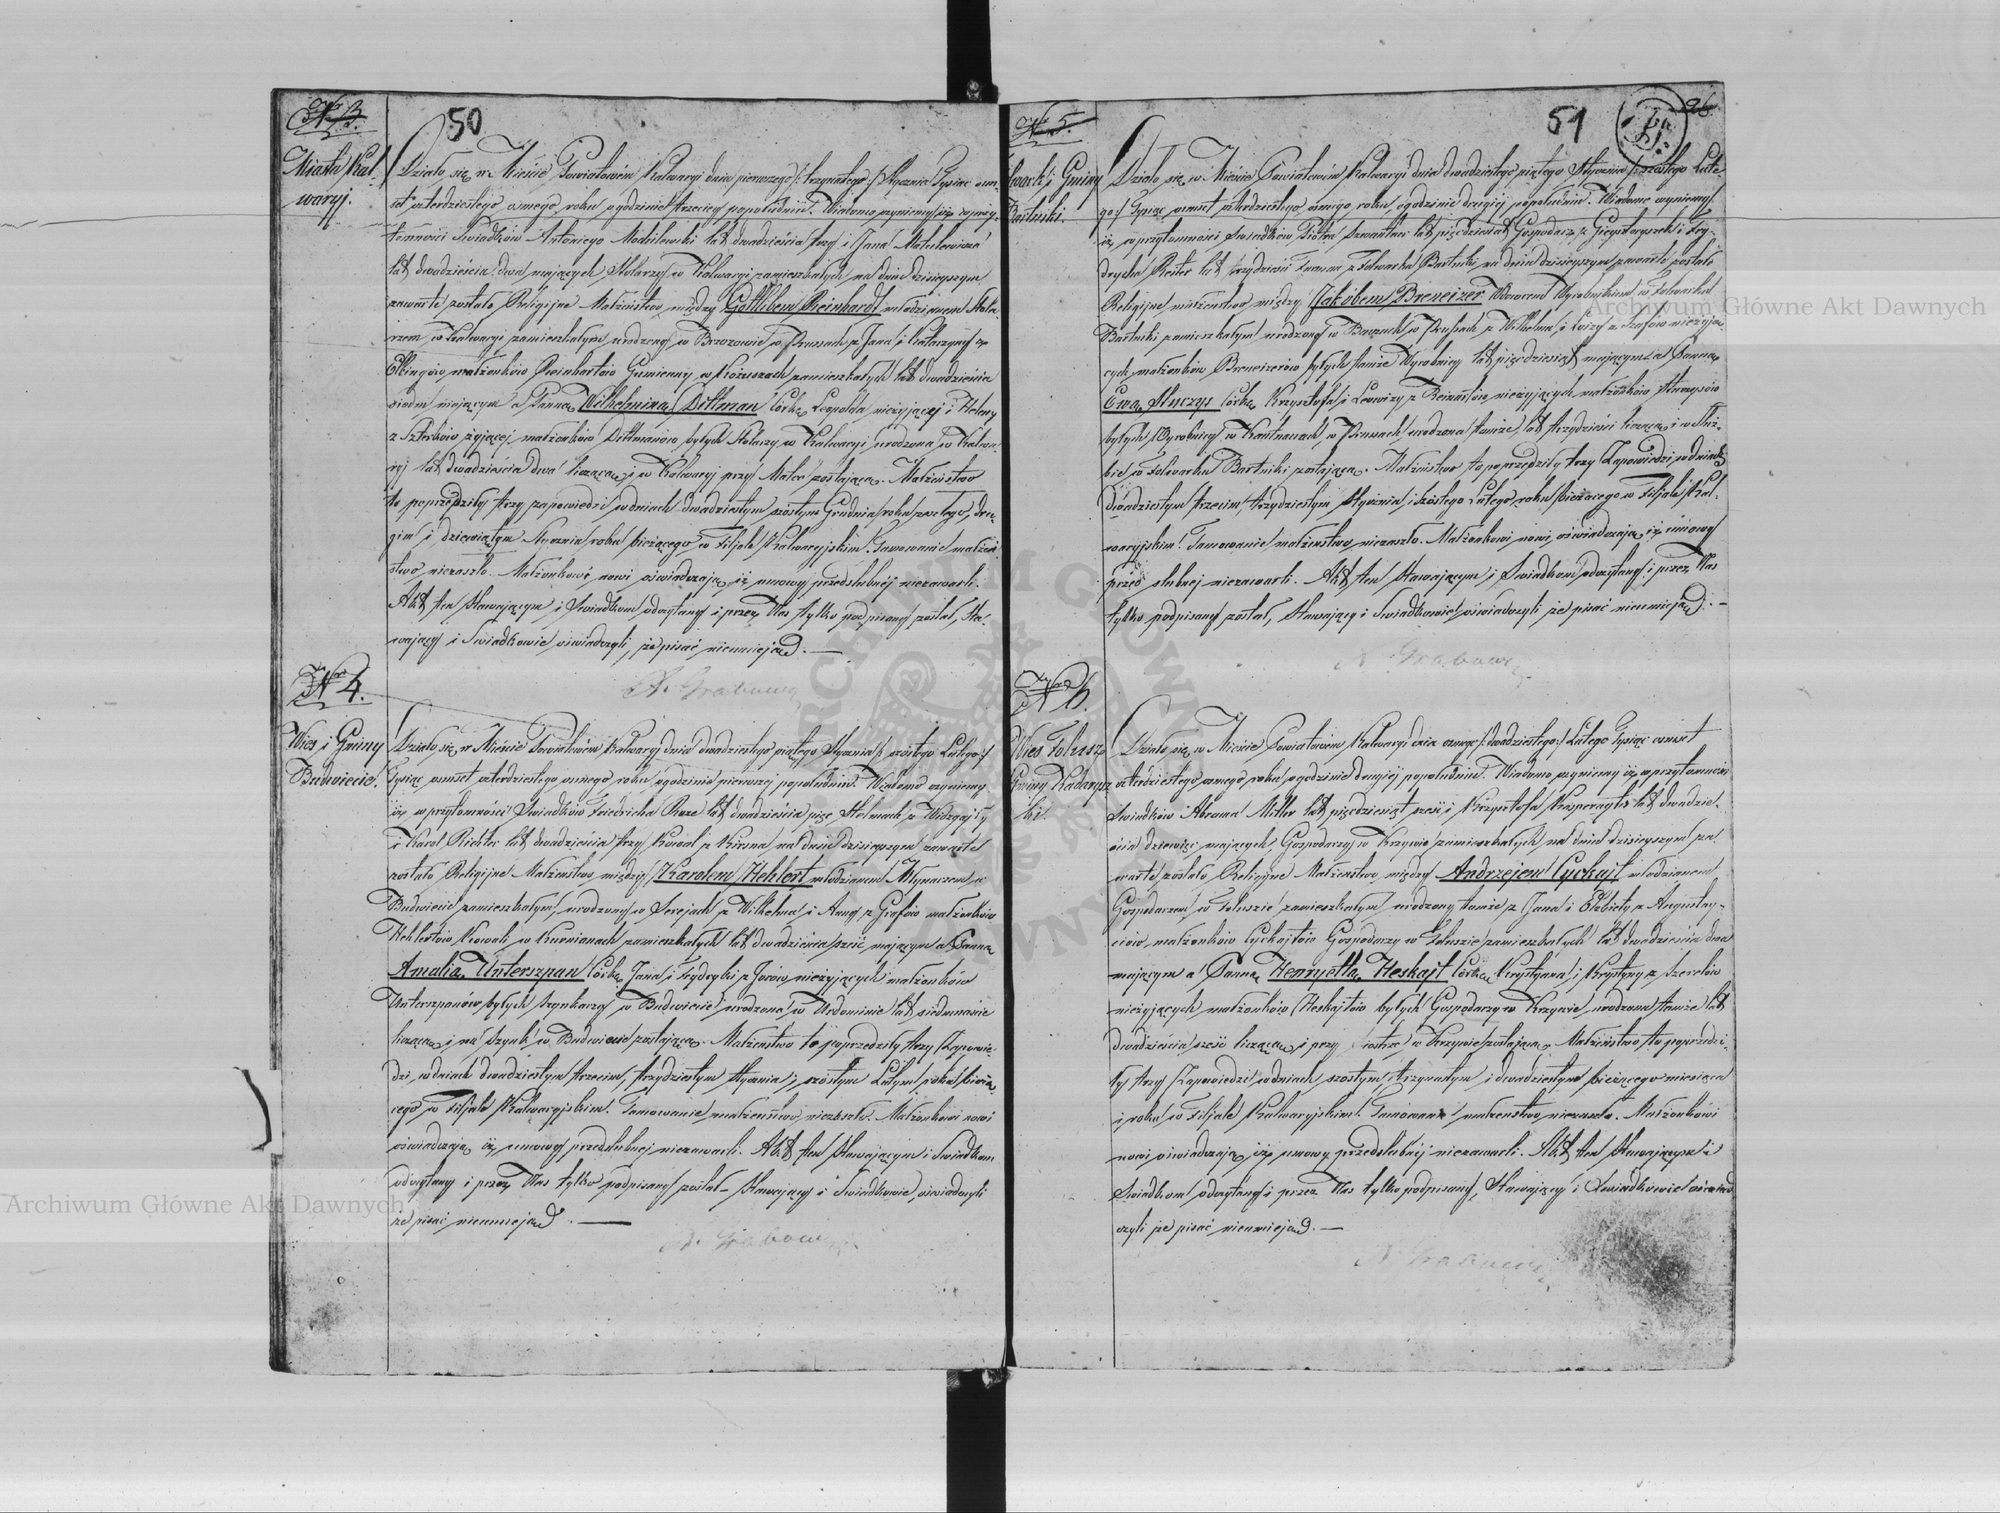 Nr 3.
50
Miasto Kal-
waryj.
Działo się w Mieście Powiatowém Kalwaryi dnia pierwszego /: trzynastego :/ Stycznia Tysiąc ośm-
set czterdziestego osmego roku o godzinie trzeciej popołudniu. Wiadomo czynimy iż w przy-
tomności Świadków Antoniego lat dwadzieścia trzy i Jana Matulewicza
lat dwadzieścia dwa mających Stolarzy w Kalwaryi zamieszkałych na dniu dzisiejszym
zawarte zostało Religijne Małżeństwo między Gottlibem Reinhardt młodzianem Stola-
rzem w Kalwaryi zamieszkałym urodzony w Brzozowie w Prusach z Jana i Katarzyny z
Elbingów małżonków Reinhartów w zamieszkałych lat dwadzieścia
siedm mającym a Panną Wilhelminą Dittman córką Leopolda nieżyjącej i Heleny
z żyjącej małżonków Dittmanów byłych Stolarzy w Kalwaryi urodzona w Kalwa-
ryi lat dwadzieścia dwa liczącą i w Kalwaryi przy Matce zostającą. Małżeństwo
to poprzedziły trzy zapowiedzi w dniach dwudziestym szóstym Grudnia roku zeszłego, dru-
gim i dziewiątym Stycznia roku bieżącego w Filjale Kalwaryjskim. Tamowanie małżeń-
stwo niezaszło. Małżonkowi nowi oświadczają iż umowy przedślubnej niezawarli.
Akt ten stawającym i Świadkom odczytany i przez Nas tylko podpisany został, Sta-
wający i Świadkowie oświadczyli, że pisać nieumieją. —
A. Grabowsk
Nr 4.
Wieś i Gminy
Budwiecie.
Działo się w Mieście Powiatowém Kalwaryi dnia dwudziestego piątego Stycznia /: szóstego Lutego :/
Tysiąc ośmset czterdziestego osmego roku o godzinie pierwszej popołudniu. Wiadomo czynimy
iż w przytomności Świadków Friedricha lat dwadzieścia pięć Stelmach z
i Karol Richter lat dwadzieścia trzy Kowal z Kirsna na dniu dzisiejszym zawarte
zostało Religijne Małżeństwo między Karolem Hehlert młodzianem Młynarzem w
Budwiecie zamieszkałym, urodzony w Serejach z Wilhelma i Anny z Grafów małżonków
Hehlertów Kowali w zamieszkałych lat dwadzieścia sześć mającym a Panną
Amalią Unterszpan córką Jana i Frydryki z nieżyjących małżonków
Unterszpanów byłych Szynkarzy w Budwiecie urodzona w Urdominie lat siedmnaście
liczącą i na Szynk w Budwiecie zostającą. Małżeństwo to poprzedziły trzy Zapowie-
dzi w dniach dwudziestym trzecim, trzydziestym Stycznia i szóstym Lutym roku bieżą-
cego w Filjale Kalwaryjskim. Tamowanie małżeństwo niezaszło. Małżonkowi nowi
oświadczają iż umowy przedślubnej niezawarli. Akt ten Stawającym i Świadkom
odczytany i przez Nas tylko podpisany został – Stawający i Świadkowie, oświadczyli
że pisać nieumieją. —
A. Grabowsk
Nr 5.
51
Folwark i Gminy
Bartniki.
Działo się w Mieście Powiatowém Kalwaryi dnia dwudziestego piątego Stycznia /: szóstego Lute-
go :/ Tysiąc ośmset czterdziestego osmego roku o godzinie drugiej popołudniu. Wiadomo czynimy
iż w przytomności Świadków Piotra lat pięćdziesiąt Gospodarz z i Fry-
drycha Reiter lat trzydzieści z Folwarku Bartniki na dniu dzisiejszym zawarte zostało
Religijne małżeństwo między Jakóbem Breneizer Wdowcem Wyrobnikiem w Folwarku
Bartniki zamieszkałym urodzony w w Prusach z Wilhelma i nieżyją-
cych małżonków Breneizerów byłych tamże Wyrobnicy lat pięćdziesiąt mającym a Panną
Ewą córką Krzysztofa i nieżyjących małżonków
byłych Wyrobnicy w w Prusach urodzona tamże lat trzydzieści liczącą i w Służ-
bie w Folwarku Bartniki zostającą. Małżeństwo to poprzedziły trzy Zapowiedzi w dniach
dwudziestym trzecim, trzydziestym Stycznia i szóstego Lutego roku bieżącego w Filjale Kal-
waryjskim. Tamowanie małżeństwo niezaszło. Małżonkowi nowi oświadczają iż umowy
przed ślubnej niezawarli. Akt ten Stawającym i Świadkom odczytany i przez Nas
tylko podpisany został, Stawający i Świadkowie oświadczyli że pisać nieumieją. —
A. Grabowsk
Nr 6.
Wieś
Gminy
Działo się w Mieście Powiatowém Kalwaryi dnia osmego /: dwudziestego :/ Lutego Tysiąc ośmset
czterdziestego osmego roku o godzinie drugiej popołudniu. Wiadomo czynimy iż w przytomności
Świadków Abrama Miller lat pięćdziesiąt sześć i Krzysztofa lat dwadzie-
ścia dziewięć mających, Gospodarzy w Krzywie zamieszkałych, na dniu dzisiejszym za-
warte zostało Religijne Małżeństwo między Andrzejem Cyckajt młodzianem
Gospodarzem w zamieszkałym urodzony tamże z Jana i Elżbiety z
małżonków Cyckajtów Gospodarzy w zamieszkałych lat dwadzieścia dwa
mającym a Panną Henryettą Heskajt córką Krystyana i Krystyny z
nieżyjących małżonków Heskajtów byłych Gospodarzy w Krzywie urodzona tamże lat
dwadzieścia sześć liczącą i przy Siostrze w Krzywie zostającą. Małżeństwo to poprzedzi-
ły trzy Zapowiedzi w dniach szóstym trzynastym i dwudziestym bieżącego miesiąca
i roku w Filjale Kalwaryjskim. Tamowanie małżeństwo niezaszło. Małżonkowi
nowi oświadczają iż umowy przedślubnej niezawarli. Akt ten Stawającym i
Świadkom odczytany i przez Nas tylko podpisany, Stawający i Świadkowie oświad-
czyli że pisać nieumieją. —
A Grabowsk
Archiwum Główne Akt Dawnych
Archiwum Główne Akt Dawnych